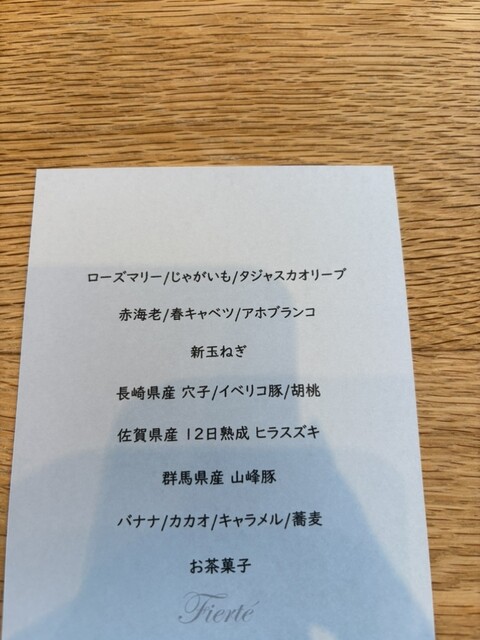 ローズマリー/じゃがいも/タジャスカオリーブ
赤海老/春キャベツ/アホブランコ
新玉ねぎ
長崎県産 穴子/イベリコ豚/胡桃
佐賀県産 12日熟成 ヒラスズキ
群馬県産 山峰豚
バナナ/カカオ/キャラメル/蕎麦
お茶菓子
Fierté